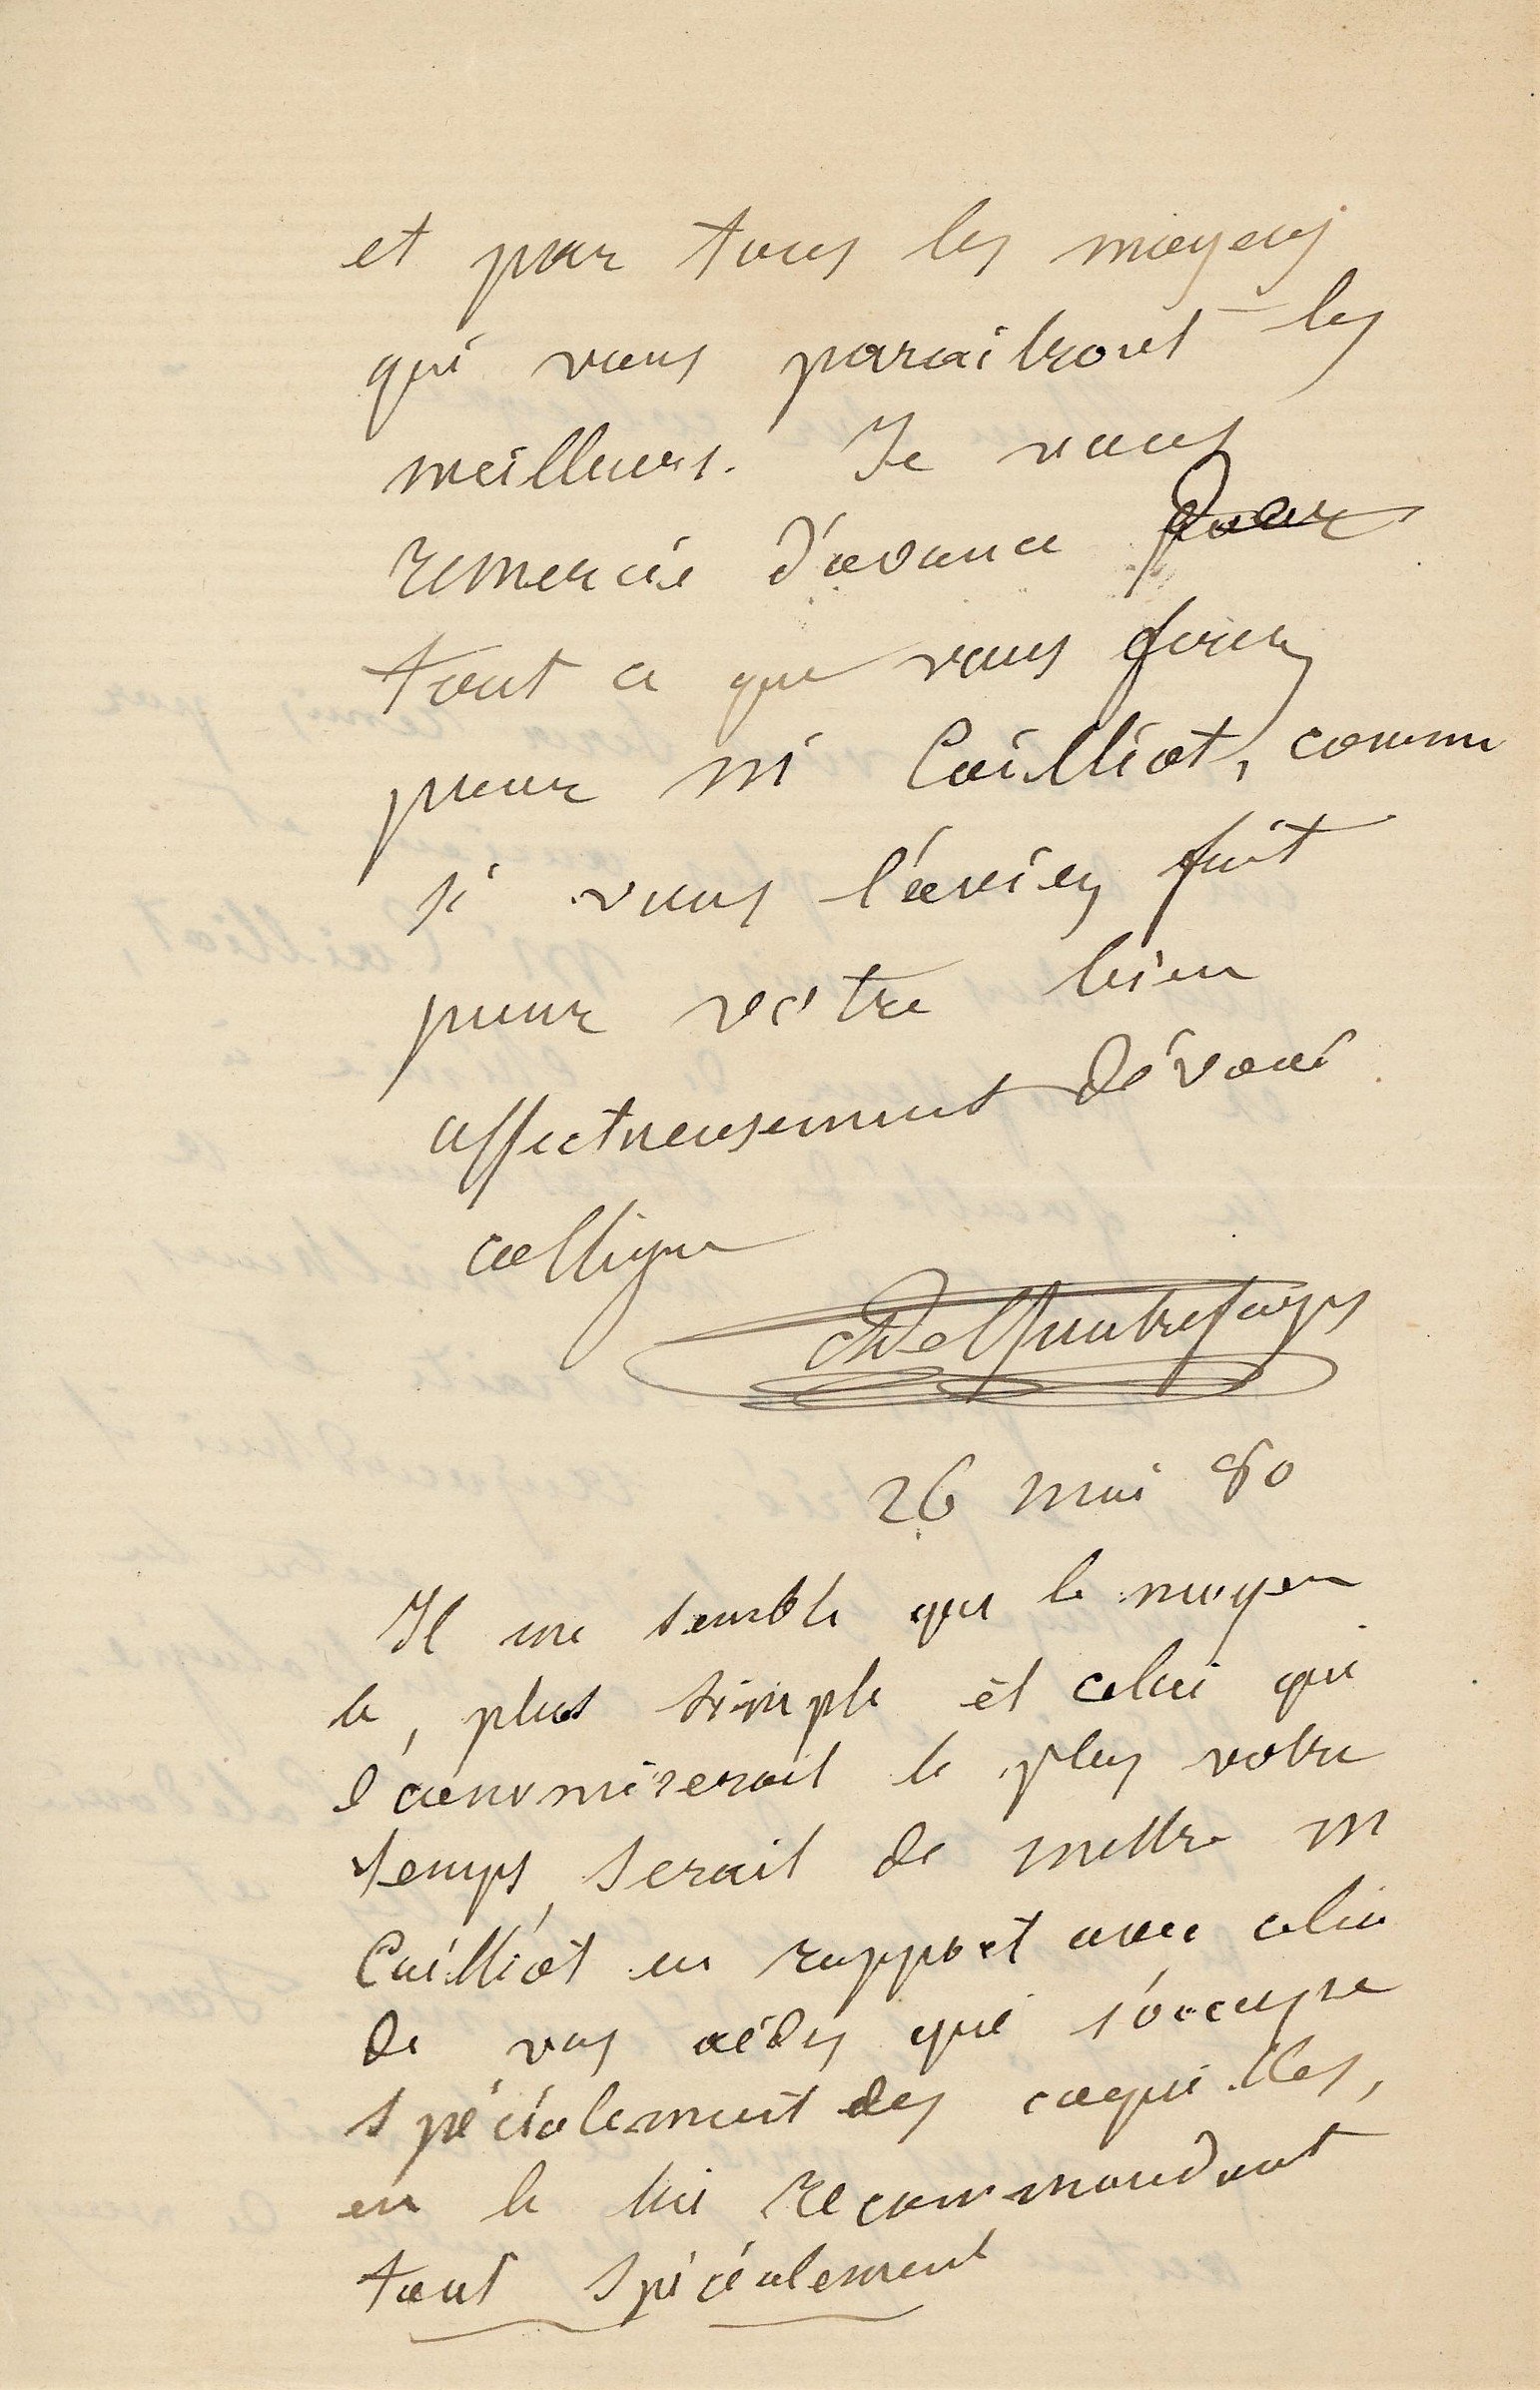 et par tous les moyens
qui vous paraitront les
meilleurs. Je vous
remercie d'avance pour
tout ce que vous ferez
pour M Cailliot, comme
si vous l'aviez fait
pour votre bien
affectueusement dévoué
collègue
de Quatrefages
26 mai 80
Il me semble que le moyen
le plus simple et celui qui
économiserait le plus votre
temps serait de mettre M
Cailliot en rapport avec celui
de vos aides qui s'occupe
spécialement des coquilles,
en le lui recommandant
tout spécialement